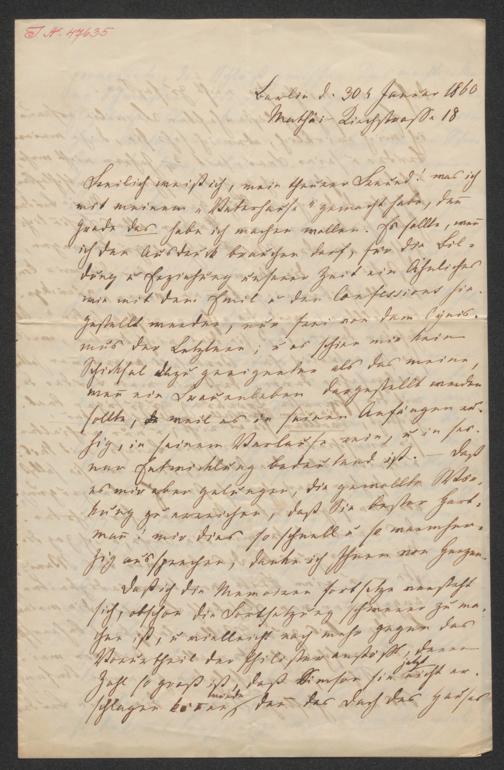 I. N. 47635
Berlin d. 30t Januar 1860
Mathäi-Kirchstraße 18
Freilich weiß ich, mein theurer Freund! was ich
mit meinem „Vaterhause" gemacht habe, denn
grade das habe ich machen wollen. Es sollte, wenn
ich den Ausdruck brauchen darf, für die Bil-
dung u Erziehung unserer Zeit ein Ähnliches
wie mit dem Emil u den Confessions hin-
gestellt werden, nur frei von dem Cynis-
mus der Letztern; u es schien mir kein
Schicksal dazu geeigneter als das meine,
wenn ein Frauenleben dargestellt werden
sollte, weil es in seinen Anfängen ru-
hig, in seinem Verlaufe rein, u in sei-
ner Entwicklung bedeutend ist. — Daß
es mir aber gelungen, die gewollte Wir-
kung zu erreichen, daß Sie bester Hart-
man! mir dies so schnell u so warmher-
zig aussprechen, danke ich Ihnen von Herzen.
Daß ich die Memoiren fortsetze versteht
sich, obschon die Fortsetzung schwerer zu ma-
chen ist, u vielleicht noch mehr gegen das
Vorurtheil der Philister anstößt, deren
Zahl so groß ist, daß Simson sie jetzt nicht er-
schlagen würde, denn das Dach des Hauses